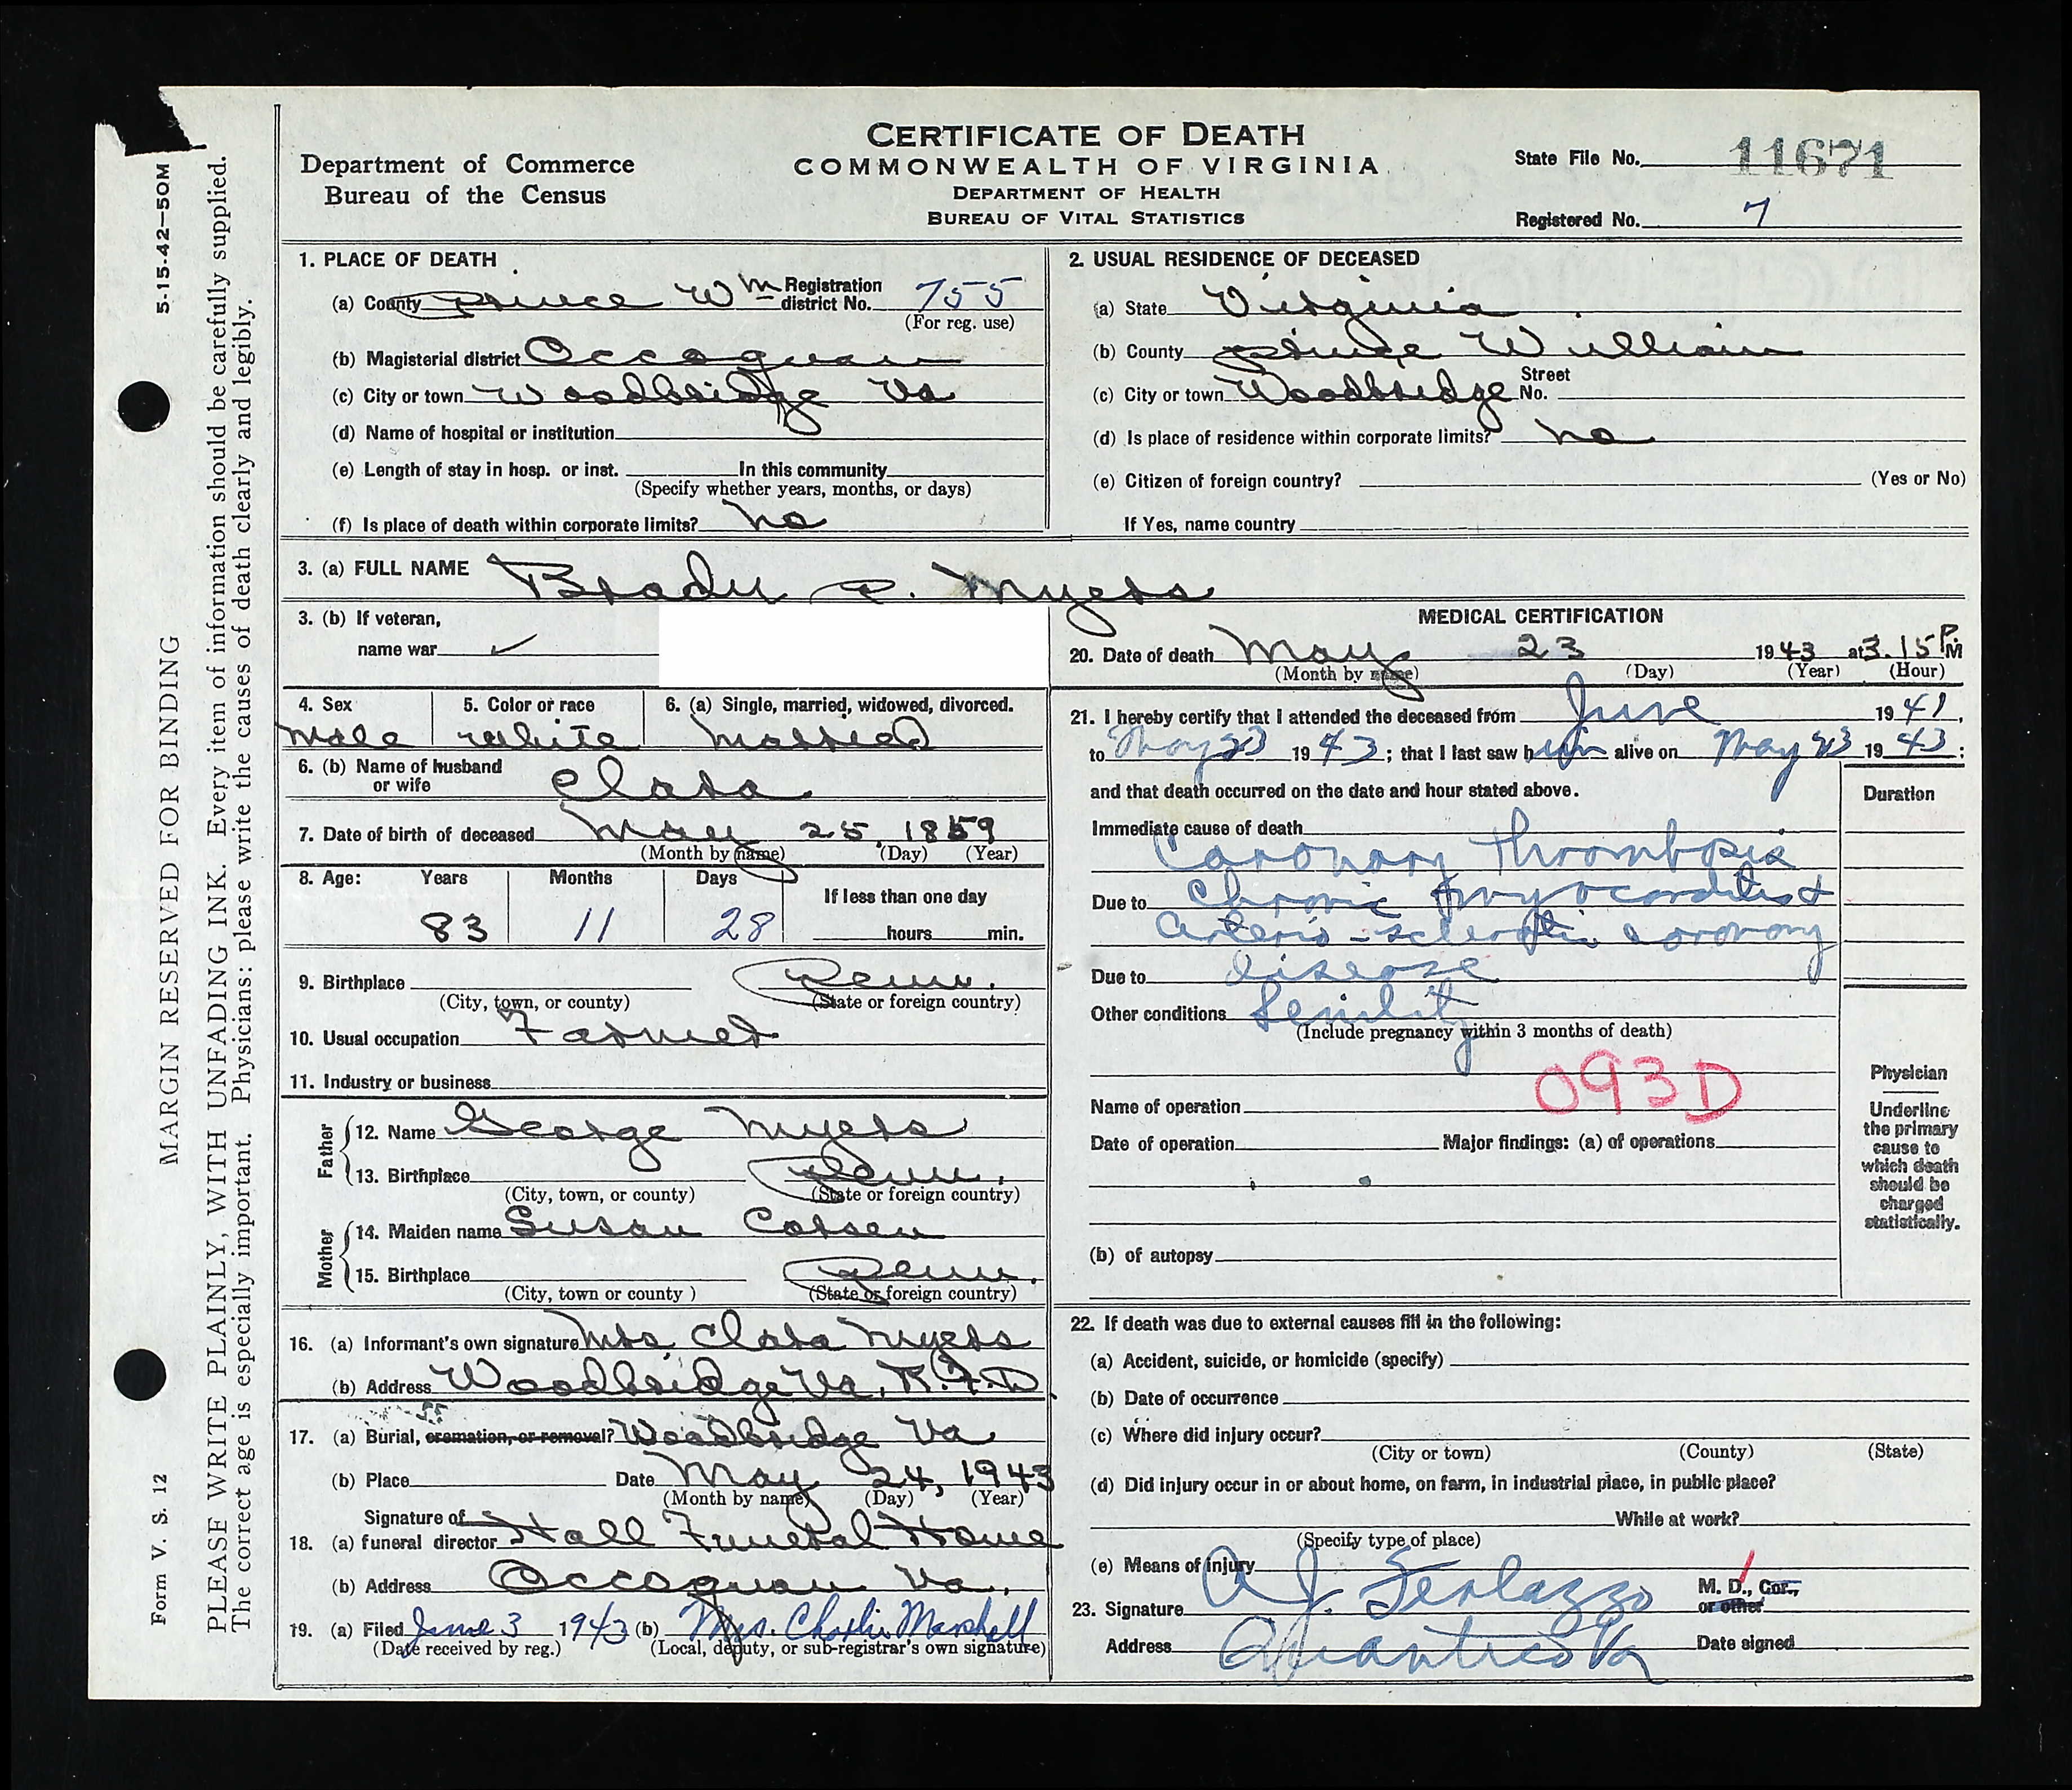 CERTIFICATE OF DEATH
COMMONWEALTH OF VIRGINIA
DEPARTMENT OF HEALTH
BUREAU OF VITAL STATISTICS
Department of Commerce
Bureau of the Census
State File No. 11671
Registered No. 7
5-15-42-50M
MARGIN RESERVED FOR BINDING
PLEASE WRITE PLAINLY, WITH UNFADING INK. Every item of information should be carefully supplied.
The correct age is especially important. Physicians: please write the causes of death clearly and legibly.
Form V. S. 12
1. PLACE OF DEATH
(a) County Prince Wm Registration district No. 755
(For reg. use)
(b) Magisterial district Occoquan
(c) City or town Woodbridge Va
(d) Name of hospital or institution
(e) Length of stay in hosp. or inst. In this community
(Specify whether years, months, or days)
(f) Is place of death within corporate limits? no
2. USUAL RESIDENCE OF DECEASED
(a) State Virginia
(b) County Prince William
(c) City or town Woodbridge Street No.
(d) Is place of residence within corporate limits? no
(e) Citizen of foreign country? (Yes or No)
If Yes, name country
3. (a) FULL NAME Brady P. Myers
3. (b) If veteran,
name war ✓
4. Sex 5. Color or race 6. (a) Single, married, widowed, divorced.
Male White Married
6. (b) Name of husband
or wife Clara
7. Date of birth of deceased May 25, 1859
(Month by name) (Day) (Year)
8. Age: Years Months Days If less than one day
83 11 28 hours min.
9. Birthplace Penn.
(City, town, or county) (State or foreign country)
10. Usual occupation Farmer
11. Industry or business
Father
12. Name George Myers
13. Birthplace Penn.
(City, town, or county) (State or foreign country)
Mother
14. Maiden name Susan Corsen
15. Birthplace Penn.
(City, town or county ) (State or foreign country)
16. (a) Informant's own signature Mrs. Clara Myers
(b) Address Woodbridge Va, R.F.D.
17. (a) Burial, cremation, or removal? Woodbridge Va
(b) Place Date May 24, 1943
(Month by name) (Day) (Year)
Signature of
18. (a) funeral director Hall Funeral Home
(b) Address Occoquan Va.
19. (a) Filed June 3 1943 (b) Mrs. Charlie Marshall
(Date received by reg.) (Local, deputy, or sub-registrar's own signature)
MEDICAL CERTIFICATION
20. Date of death May 23 1943 at 3.15 P.M
(Month by name) (Day) (Year) (Hour)
21. I hereby certify that I attended the deceased from June 1941,
to May 23 1943; that I last saw him alive on May 23 1943:
and that death occurred on the date and hour stated above.
Duration
Immediate cause of death
Coronary thrombosis
Due to Chronic myocarditis &
Arterio-sclerotic coronary
Due to disease
Other conditions Senility
(Include pregnancy within 3 months of death)
093D
Name of operation
Date of operation Major findings: (a) of operations
(b) of autopsy
Physician
Underline
the primary
cause to
which death
should be
charged
statistically.
22. If death was due to external causes fill in the following:
(a) Accident, suicide, or homicide (specify)
(b) Date of occurrence
(c) Where did injury occur?
(City or town) (County) (State)
(d) Did injury occur in or about home, on farm, in industrial place, in public place?
While at work?
(Specify type of place)
(e) Means of injury
23. Signature A J. Ferlazzo M. D., Cor., or other
Address Quantico Va Date signed